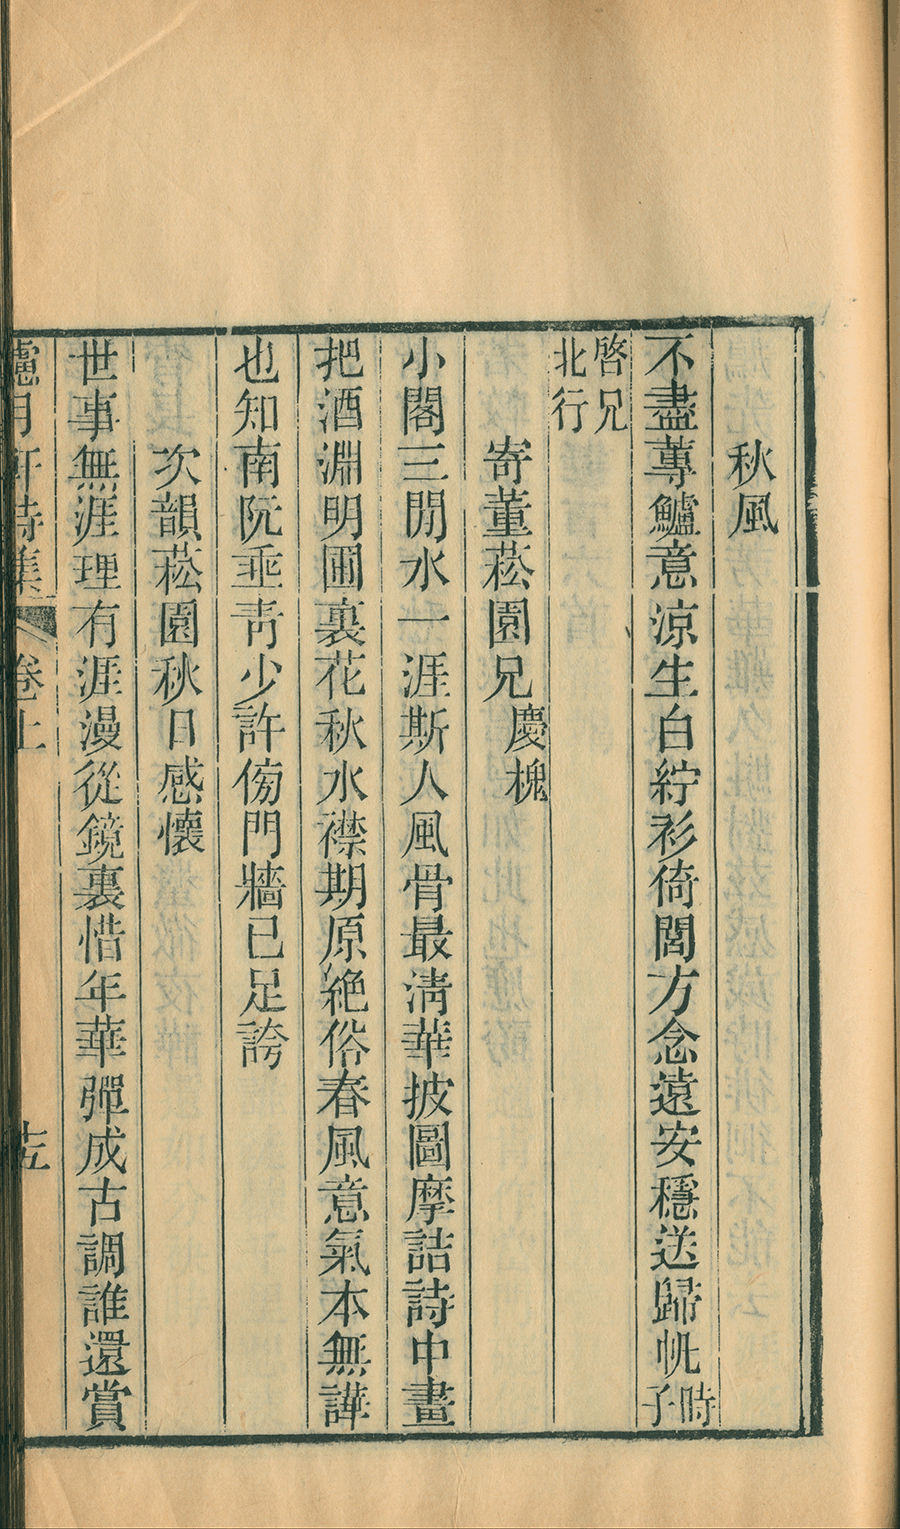 秋風
不盡蓴鱸意涼生白紵衫倚閭方念遠安穩送歸帆時子
啓兄北行
寄董菘園兄慶槐
小閣三閒水一涯斯人風骨最清華披圖摩詰詩中畫
把酒淵明圃裏花秋水襟期原絶俗春風意氣本無譁
也知南阮垂靑少許傍門牆已足誇
次韻菘園秋日感懷
世事無涯理有涯漫從鏡裏惜年華彈成古調誰還賞
月軒詩集 卷上 十五